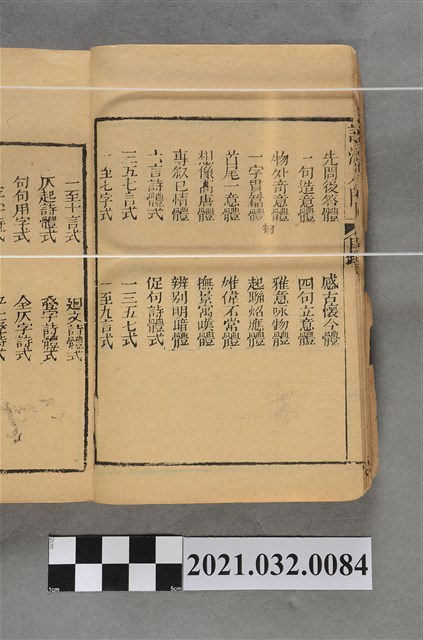 先問後答體 感古懷今體
一句造意體 四句立意體
物外奇意體 雅意咏物體
一字貫篇體 起聯炤應體
物
首尾一意體 雄偉不常體
想像高唐體 撫景寓嘆體
專叙己情體 辨别明暗體
六言詩體式 促句詩體式
三五七言式 一三五七式
一至七字式 一至九言式
一至十言式 廻文詩體式
仄起詩體式 叠字詩體式
句句用字式 全仄字詩式
2021.032.0084